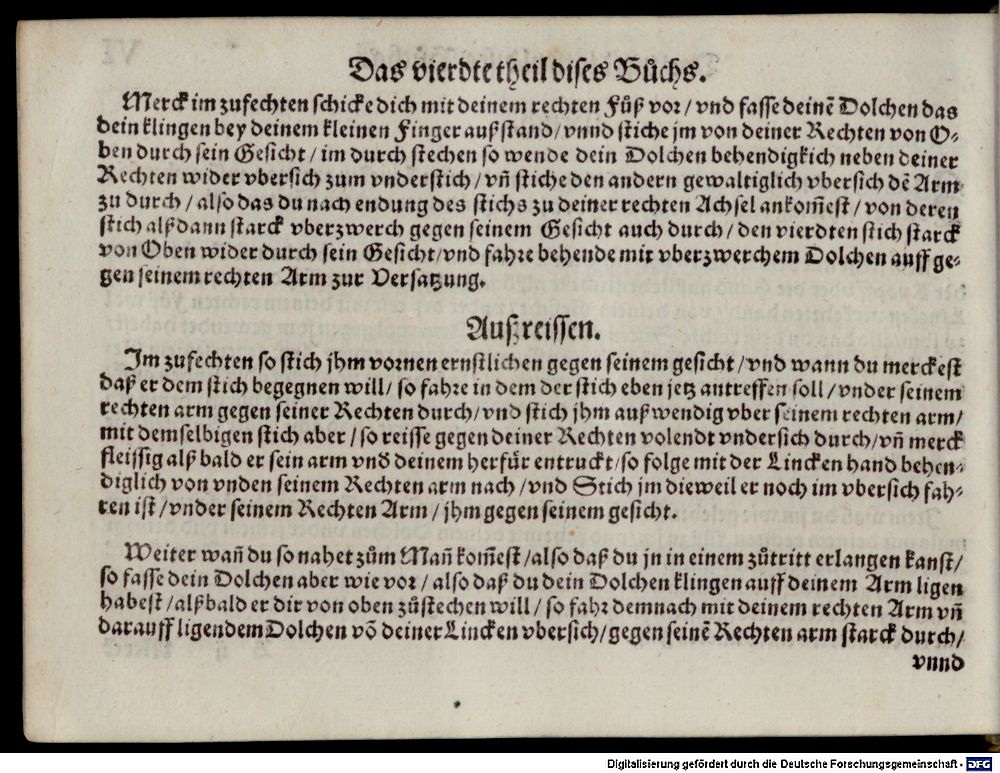 Das vierdte theil dises Bůchs.
Merck im zufechten schicke dich mit deinem rechten Fůß vor / vnd fasse deinē Dolchen das
dein klingen bey deinem kleinen Finger außstand / vnnd stiche jm von deiner Rechten von O-
ben durch sein Gesicht / im durch stechen so wende dein Dolchen behendigkich neben deiner
Rechten wider vbersich zum vnderstich / vñ stiche den andern gewaltiglich vbersich dē Arm
zu durch / also das du nach endung des stichs zu deiner rechten Achsel ankom̃est / von deren
stich alßdann starck vberzwerch gegen seinem Gesicht auch durch / den vierdten stich starck
von Oben wider durch sein Gesicht / vnd fahre behende mit vberzwerchem Dolchen auff ge-
gen seinem rechten Arm zur Versatzung.
Außreissen.
Im zufechten so stich jhm vornen ernstlichen gegen seinem gesicht / vnd wann du merckest
daß er dem stich begegnen will / so fahre in dem der stich eben jetz antreffen soll / vnder seinem
rechten arm gegen seiner Rechten durch / vnd stich jhm außwendig vber seinem rechten arm /
mit demselbigen stich aber / so reisse gegen deiner Rechten volendt vndersich durch / vñ merck
fleissig alß bald er sein arm vnd deinem herfür entruckt / so folge mit der Lincken hand behen-
diglich von vnden seinem Rechten arm nach / vnd Stich jm dieweil er noch im vbersich fah-
ren ist / vnder seinem Rechten Arm / jhm gegen seinem gesicht.
Weiter wañ du so nahet zům Mañ kom̃est / also daß du jn in einem zůtritt erlangen kanst /
so fasse dein Dolchen aber wie vor / also daß du dein Dolchen klingen auff deinem Arm ligen
habest / alßbald er dir von oben zůstechen will / so fahr demnach mit deinem rechten Arm vñ
darauff ligendem Dolchen vō deiner Lincken vbersich / gegen seinē Rechten arm starck durch /
vnnd
Digitalisierung gefördert durch die Deutsche Forschungsgemeinschaft - DFG